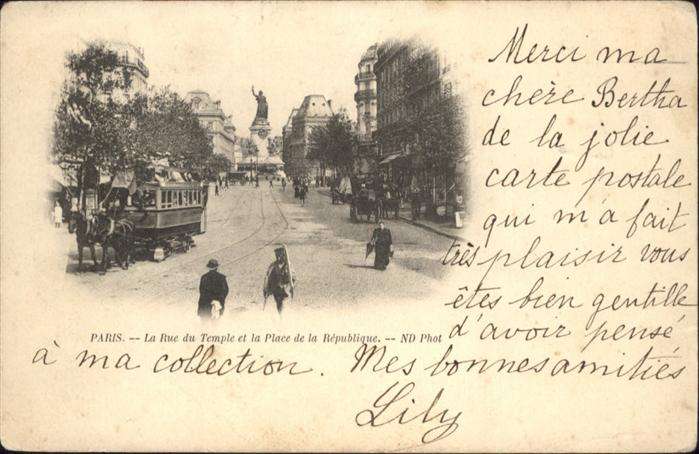 Merci ma
chère Bertha
de la jolie
carte postale
qui m'a fait
très plaisir vous
êtes bien gentille
PARIS. -- La Rue du Temple et la Place de la République. -- ND Phot
d'avoir pensé
à ma collection. Mes bonnes amitiés
Lily